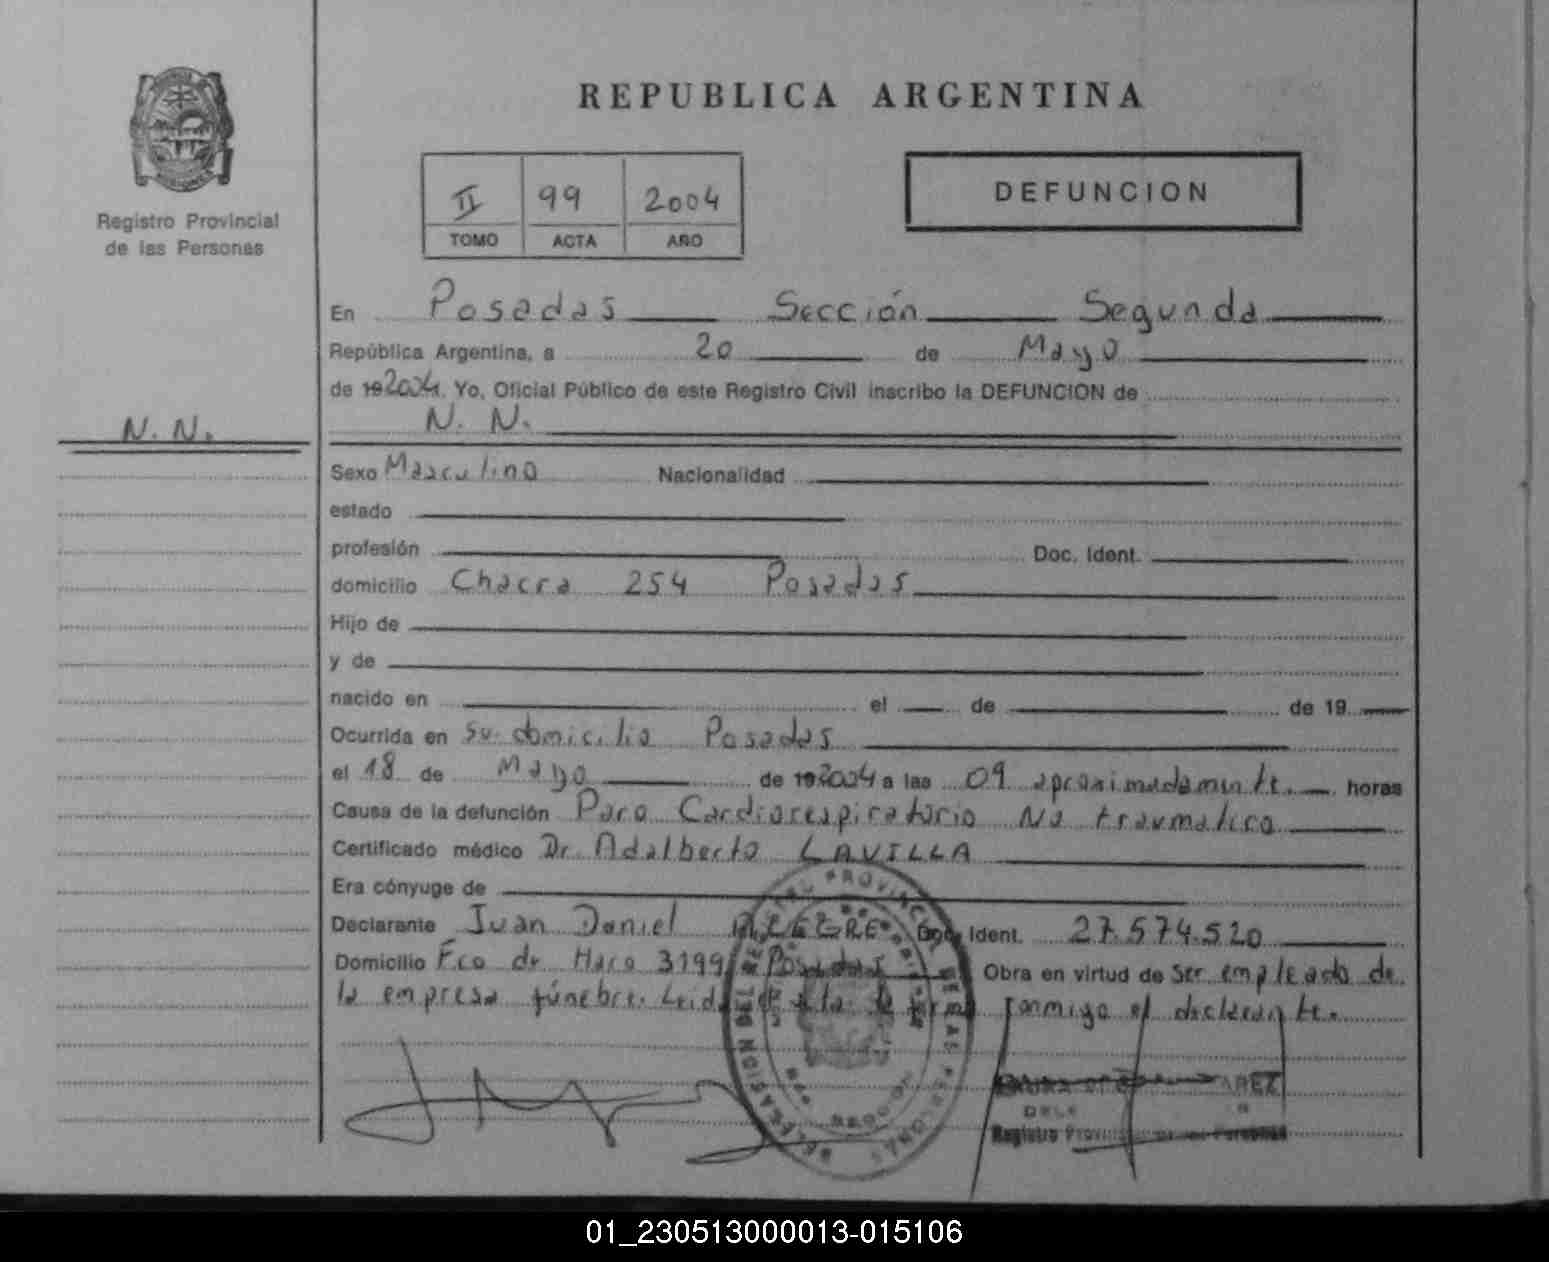 REPUBLICA ARGENTINA
Registro Provincial
de las Personas
II 99 2004
TOMO ACTA AÑO
DEFUNCION
En Posadas Sección Segunda
República Argentina, a 20 de Mayo
de 19 2004. Yo, Oficial Público de este Registro Civil inscribo la DEFUNCION de
N. N.
N. N.
Sexo Masculino Nacionalidad
estado
profesión Doc. Ident.
domicilio Chacra 254 Posadas
Hijo de
y de
nacido en el de de 19
Ocurrida en su domicilio Posadas
el 18 de Mayo de 19 2004 a las 09 aproximadamente. horas
Causa de la defunción Paro Cardiorespiratorio No traumatico
Certificado médico Dr. Adalberto LAVILLA
Era cónyuge de
Declarante Juan Daniel ALEGRE Doc. Ident. 27.574.520
Domicilio Fco de Haro 3199 Posadas Obra en virtud de ser empleado de
la empresa fúnebre. Leida el acta la firma conmigo el declarante.
DELEGACION DEL REGISTRO PROVINCIAL DE LAS PERSONAS
Registro Provincial de las Personas
01_230513000013-015106